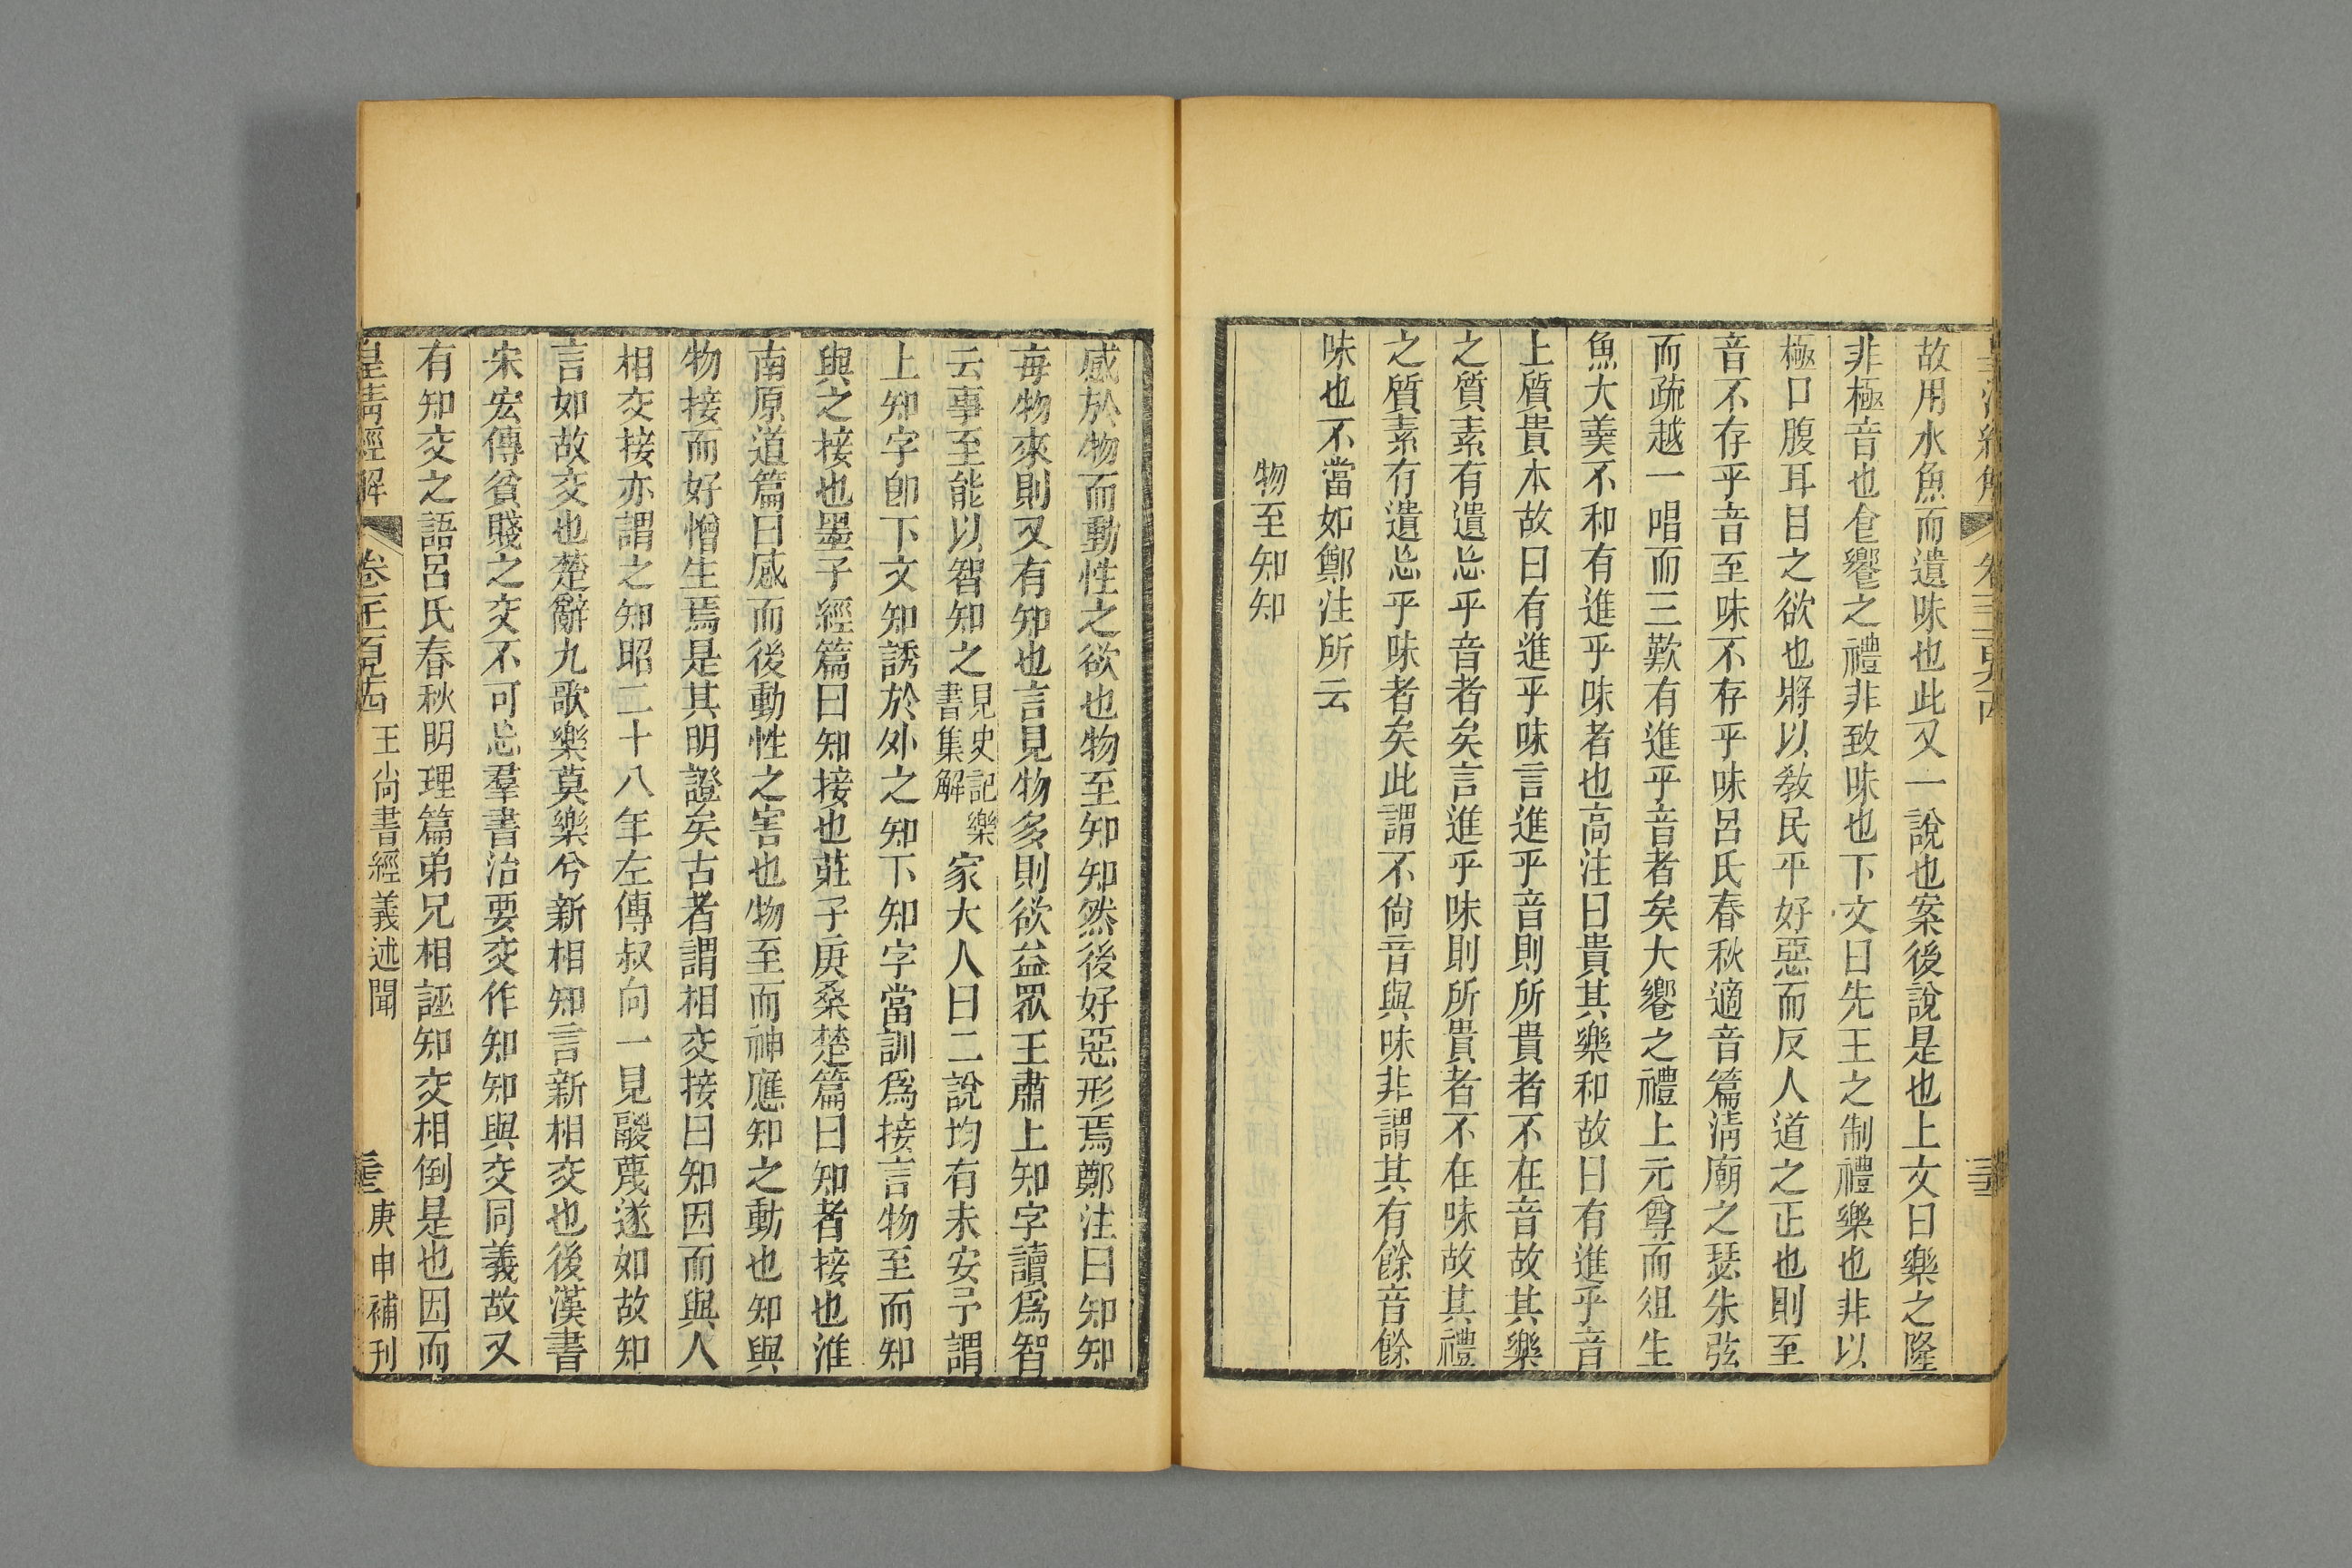 故用水魚而遺味也此又一說也案後說是也上文曰樂之隆
非極音也食饗之禮非致味也下文曰先王之制禮樂也非以
極口腹耳目之欲也將以敎民平好惡而反人道之正也則至
音不存乎音至味不存乎味呂氏春秋適音篇淸廟之瑟朱弦
而疏越一唱而三歎有進乎音者矣大饗之禮上元尊而俎生
魚大羹不和有進乎味者也高注曰貴其樂和故曰有進乎音
上質貴本故曰有進乎味言進乎音則所貴者不在音故其樂
之質素有遺忘乎音者矣言進乎味則所貴者不在味故其禮
之質素有遺忘乎味者矣此謂不尙音與味非謂其有餘音餘
味也不當如鄭注所云
物至知知
感於物而動性之欲也物至知知然後好惡形焉鄭注曰知知
每物來則又有知也言見物多則欲益眾王肅上知字讀爲智
云事至能以智知之見史記樂書集解家大人曰二說均有未安予謂
上知字卽下文知誘於外之知下知字當訓爲接言物至而知
與之接也墨子經篇曰知接也莊子庚桑楚篇曰知者接也淮
南原道篇曰感而後動性之害也物至而神應知之動也知與
物接而好憎生焉是其明證矣古者謂相交接曰知因而與人
相交接亦謂之知昭二十八年左傳叔向一見鬷蔑遂如故知
言如故交也楚辭九歌樂莫樂兮新相知言新相交也後漢書
宋宏傳貧賤之交不可忘羣書治要交作知知與交同義故又
有知交之語呂氏春秋明理篇弟兄相誣知交相倒是也因而
皇淸經解 卷一千一百九十四 王尙書經義述聞 庚申補刊